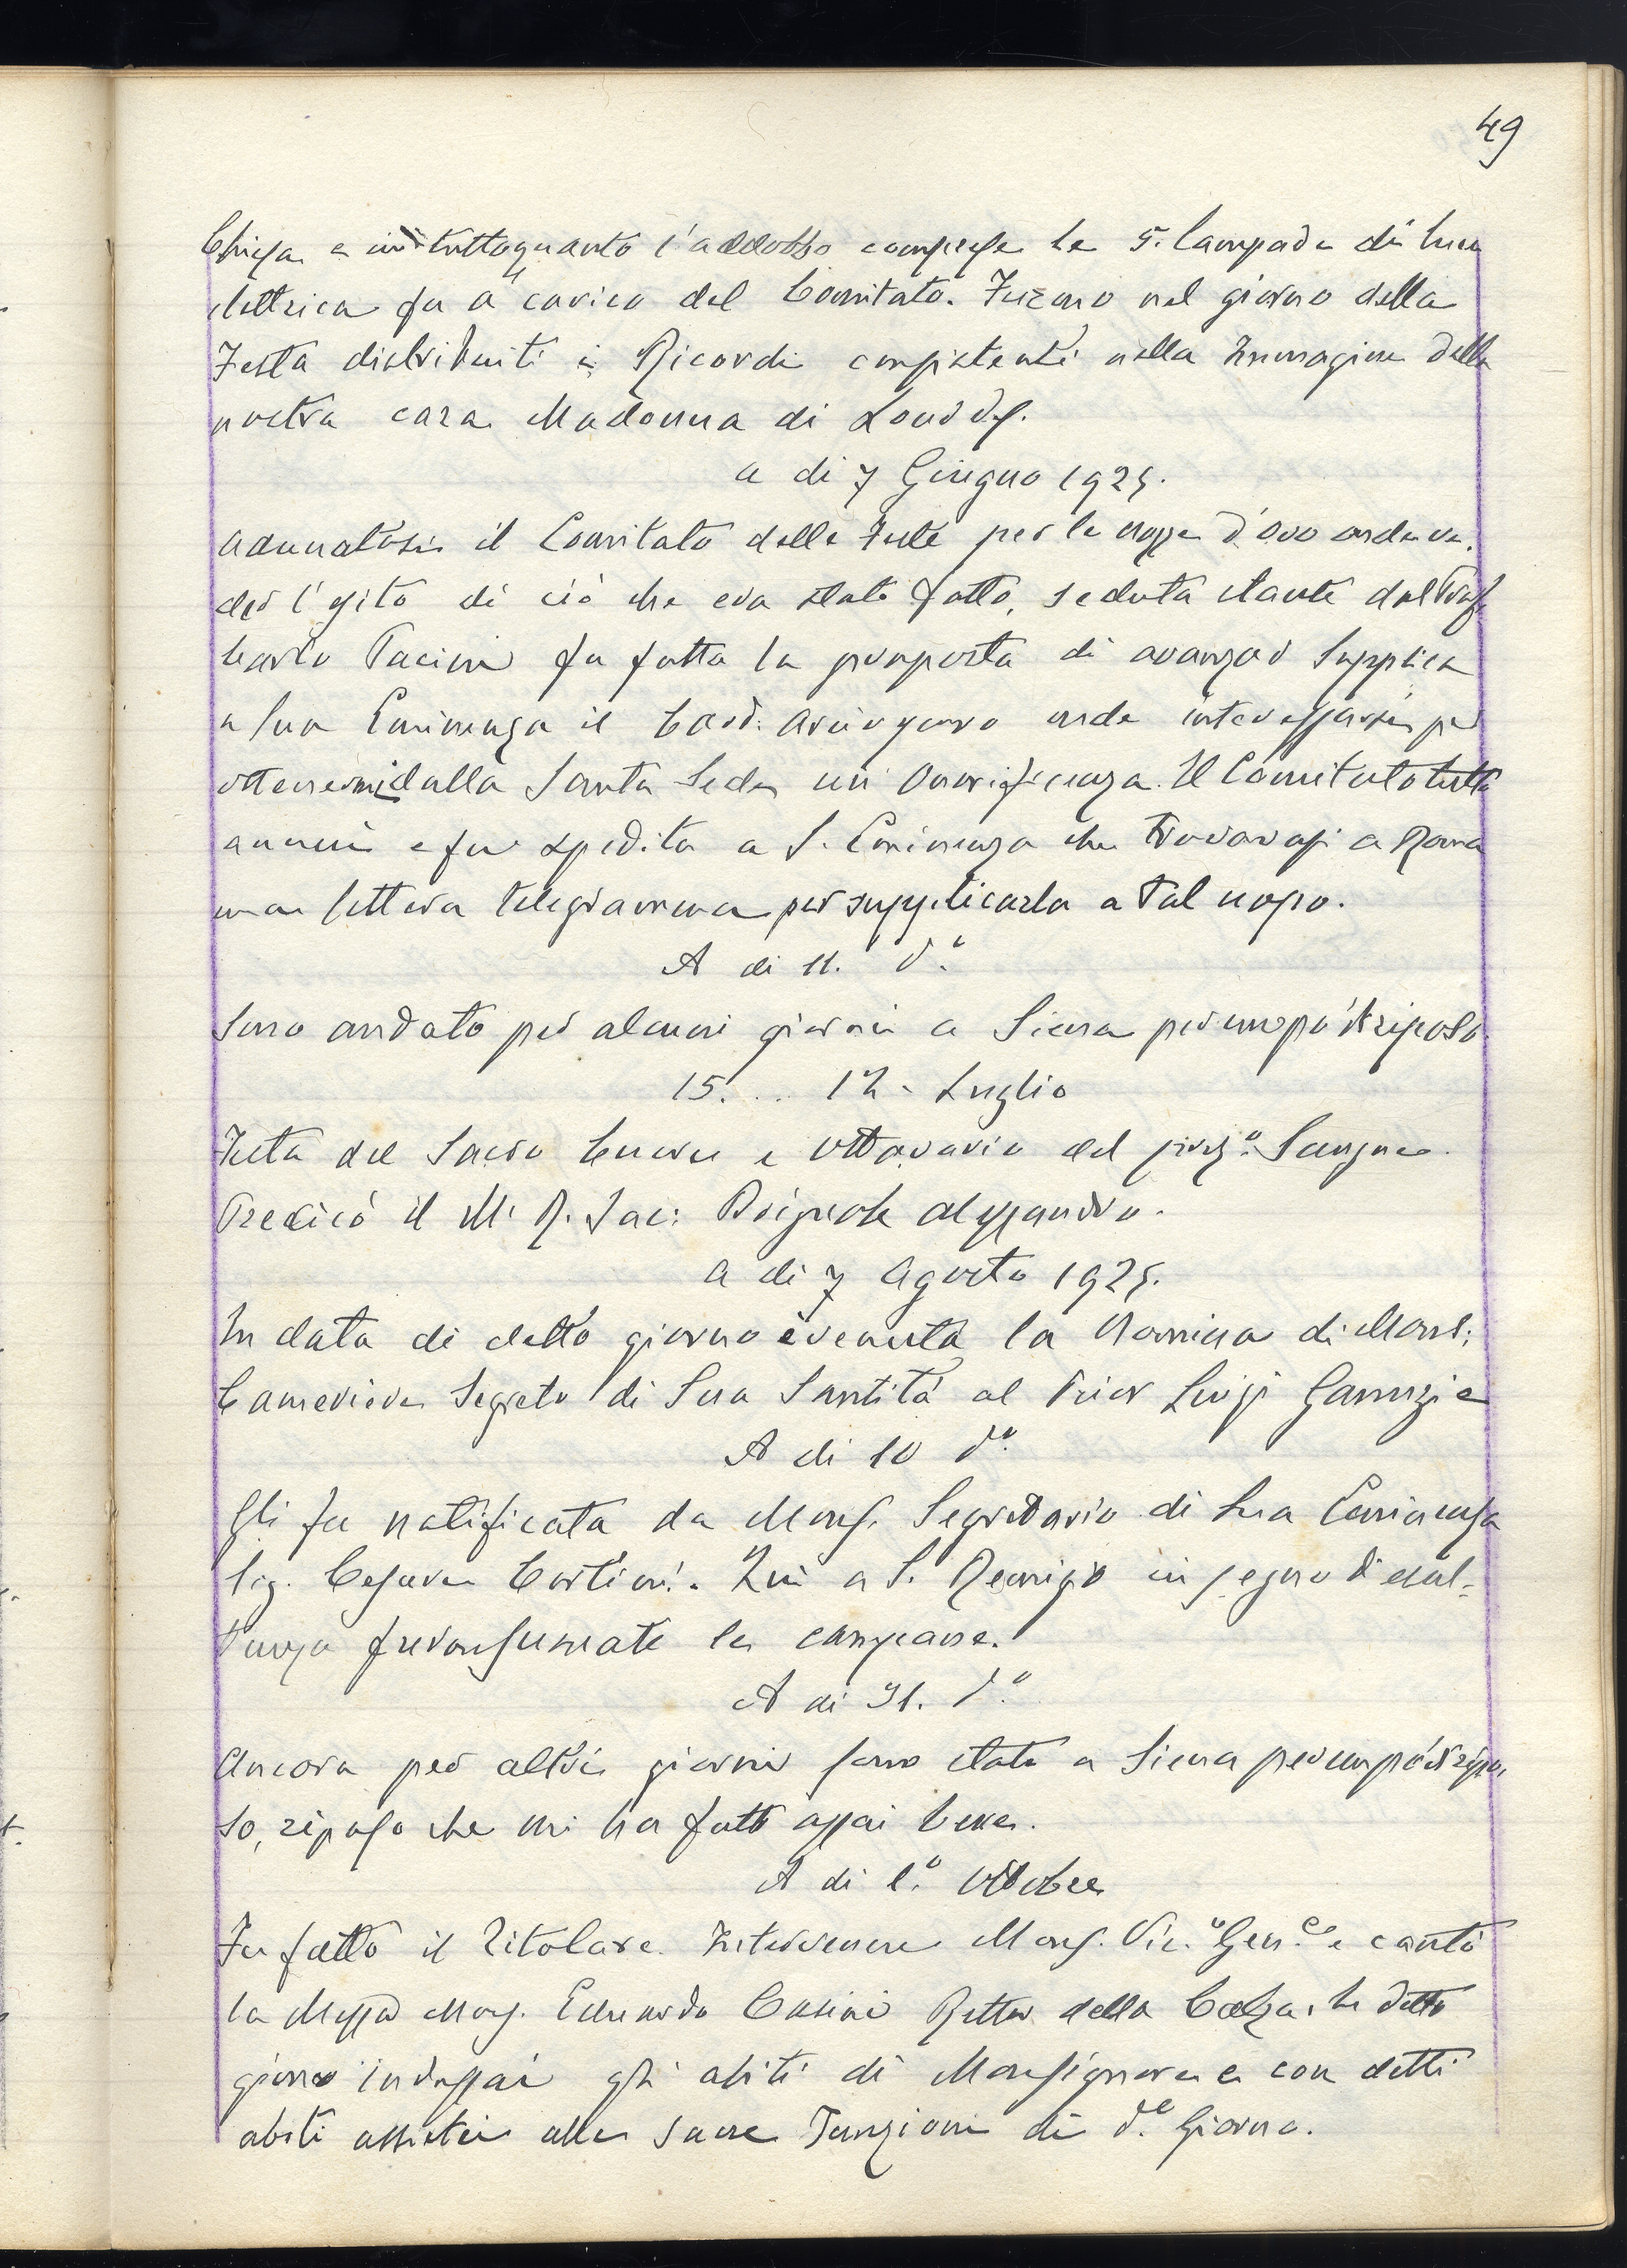 49
Chiesa e in tuttoquanto l'addobbo comprese le 5. lampade di luce
elettrica fu a carico del Comitato. Furono nel giorno della
Festa distribuiti i Ricordi consistenti nella Immagine della
nostra cara Madonna di Lourdes.
a di 7 Giugno 1925.
Adunatosi il Comitato delle Feste per le nozze d'oro onde ve-
der l'esito di ciò che era stato fatto, seduta stante dal
Carlo Pacini fu fatta la proposta di avanzar supplica
a Sua Eminenza il Card. Arcivescovo onde interessarsi per
ottenermi dalla Santa Sede un Onorificenza. Il Comitato tutto
annuì e fu spedita a S. Eminenza che trovavasi a Roma
una lettera telegramma per supplicarla a tal uopo.
A di 11. d.º
Sono andato per alcuni giorni a Siena per un po' di riposo.
15... 12 - Luglio
Festa del Sacro Cuore e Ottavario del prez.º Sangue.
Predicò il M. R. Sac: Brignole Alessandro.
a di 7 Agosto 1925.
In data di detto giorno è venuta la Nomina di Mons:
Cameriere Segreto di Sua Santità al Prior Luigi
A di 10 d.º
Gli fu notificata da Mons. Segretario di Sua Eminenza
Sig. Cesare . Qui a S. Remigio in segno di esul-
tanza furon suonate le campane.
A di 31. d.º
Ancora per altri giorni sono stato a Siena per un po' di ripo
so, riposo che mi ha fatto assai bene.
A di 1.º Ottobre
Fu fatto il Titolare. Intervenne Mons. Vic.º Gen.le e cantò
la Messa Mons. Eduardo Casini Rettor della Calza. In detto
giorno indossai gli abiti di Monsignore e con detti
abiti assistei alle sacre Funzioni di d.º Giorno.